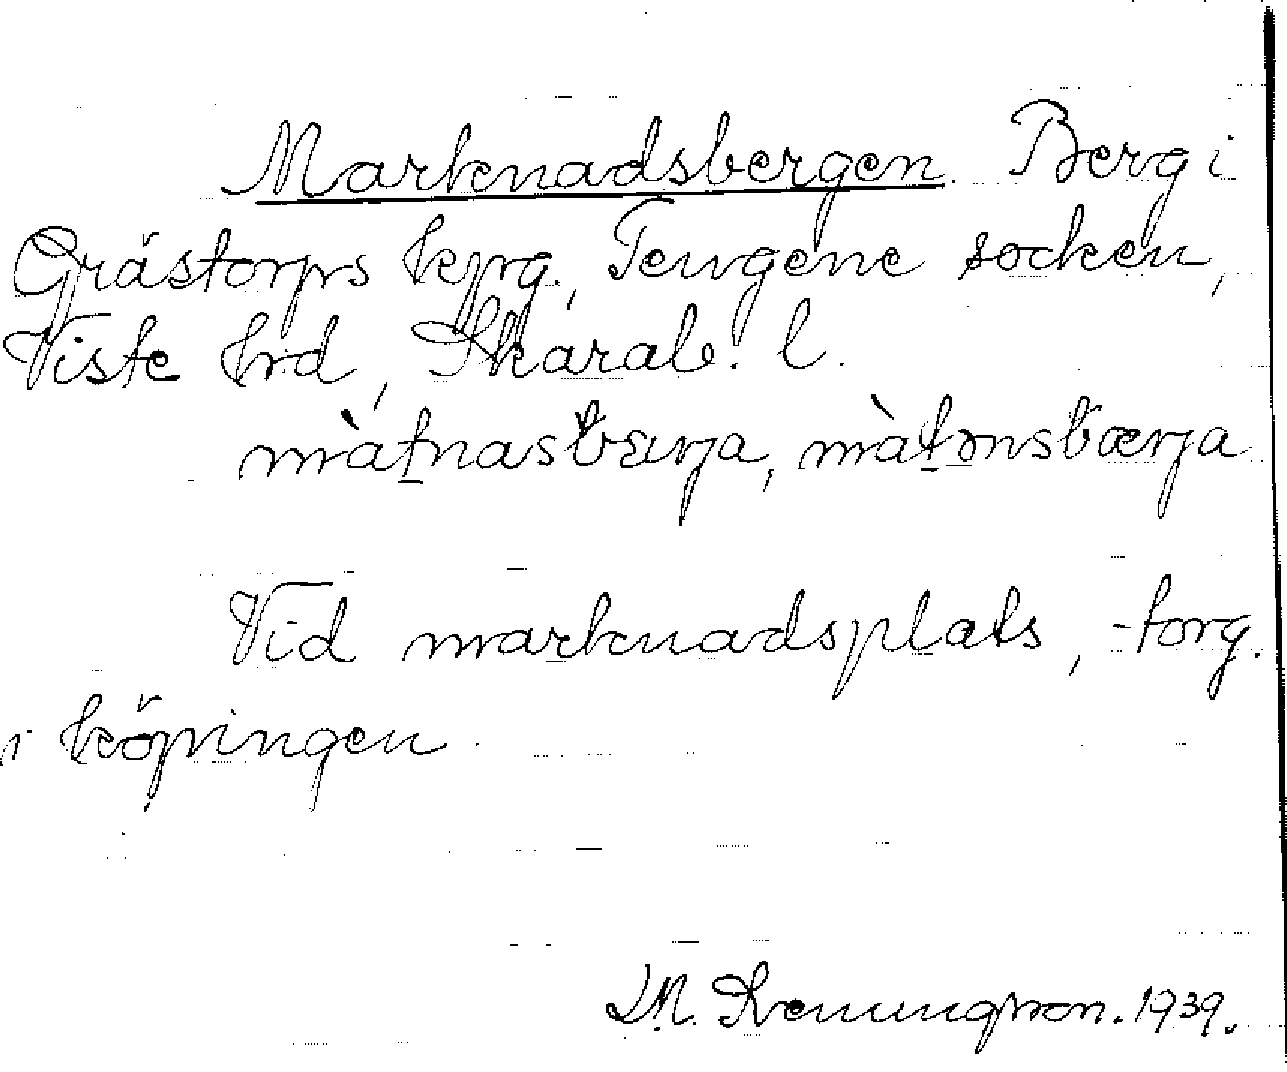 Marknadsbergen. Berg i
Grästorps kpg, Tengene socken,
Viste hrd, Skarab. l.
màt̠nasbærja, màt̠ənsbærja
Vid marknadsplats, -torg.
i köpingen.
1939.